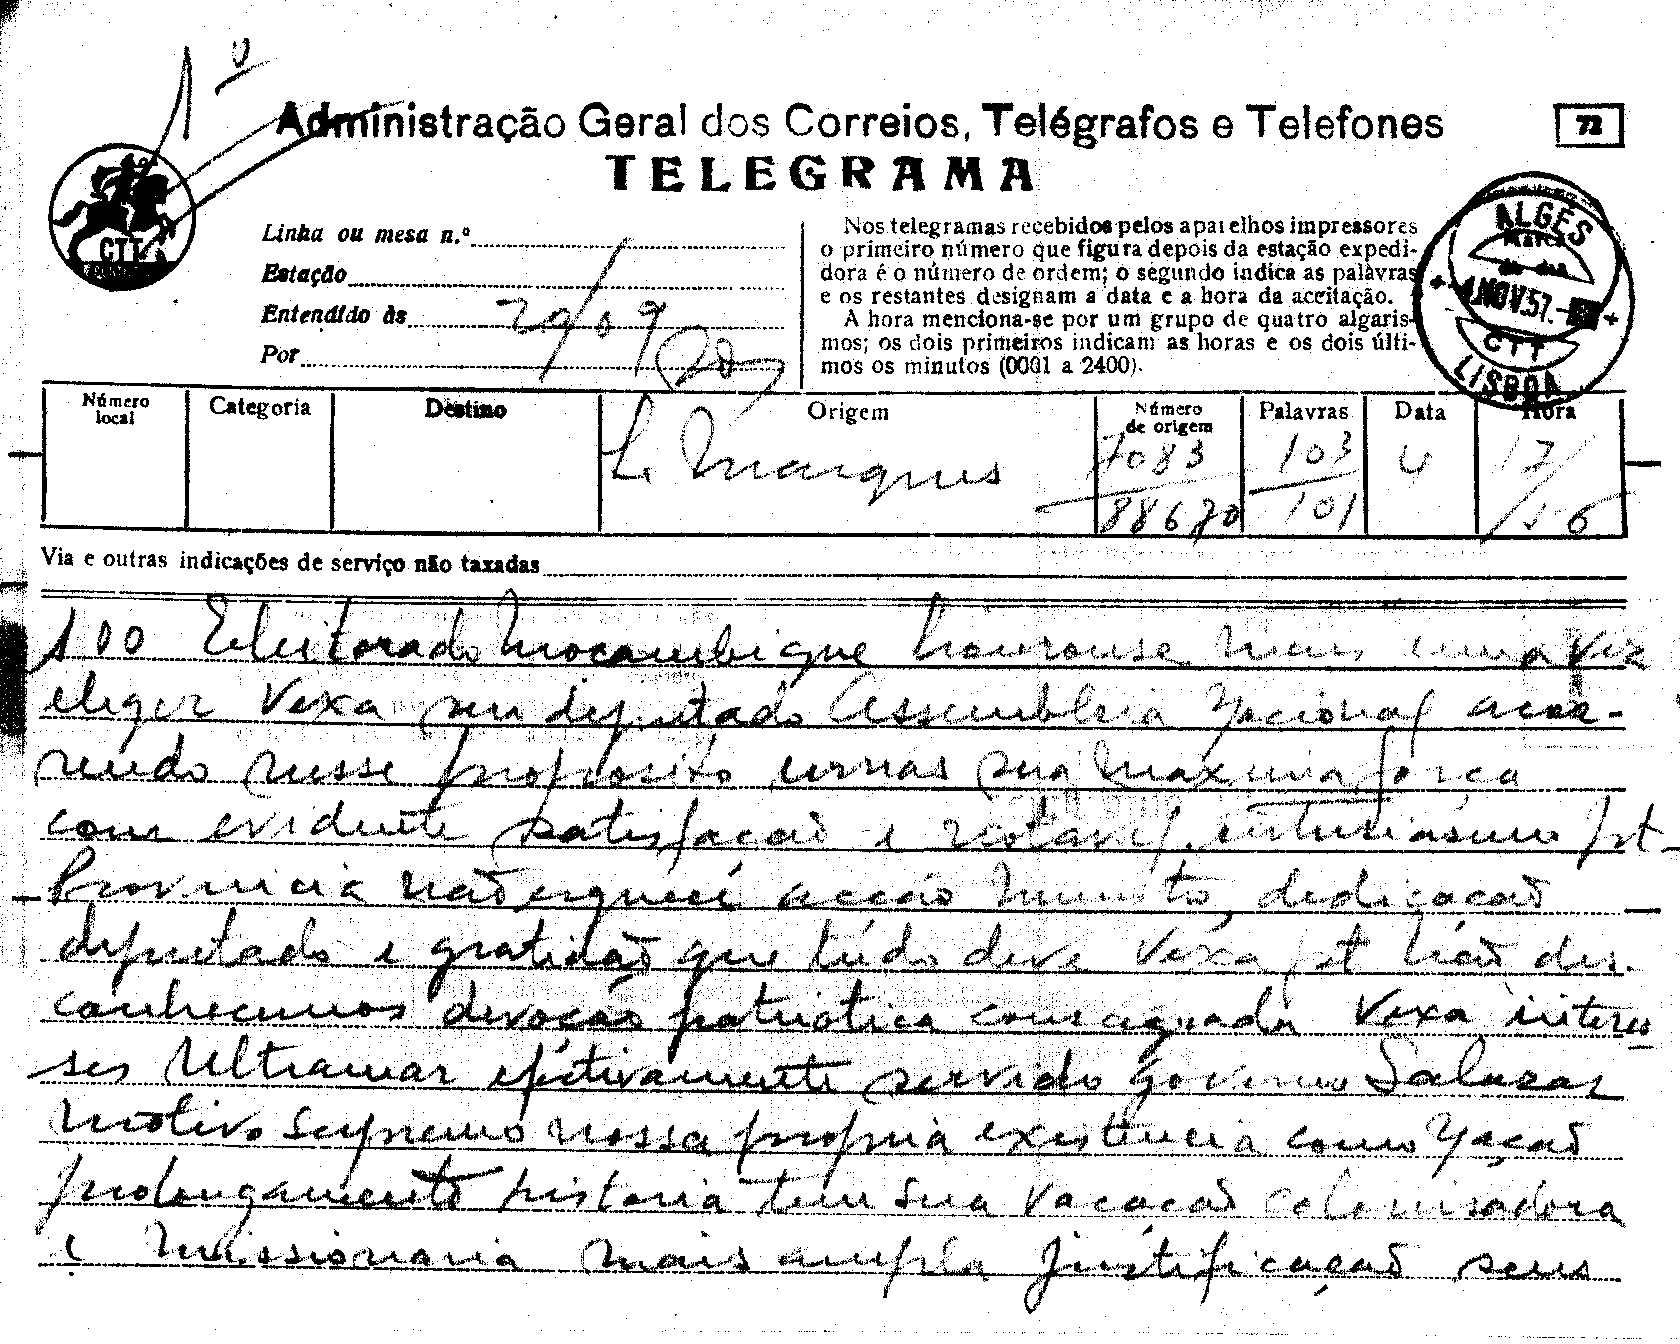 1º
Administração Geral dos Correios, Telégrafos e Telefones
72
TELEGRAMA
CTT
Linha ou mesa n.º
Estação
Entendido às 20/09
Por
Nos telegramas recebidos pelos aparelhos impressores
o primeiro número que figura depois da estação expedi-
dora é o número de ordem; o segundo indica as palavras
e os restantes designam a data e a hora da aceitação.
A hora menciona-se por um grupo de quatro algaris-
mos; os dois primeiros indicam as horas e os dois últi-
mos os minutos (0001 a 2400).
ALGÉS
NOV.57
CTT
LISBOA
Número local
Categoria
Destino
Origem
Número de origem
Palavras
Data
Hora
L. Marques 7083 103 4 17/
88670 101 /56
Via e outras indicações de serviço não taxadas
100 Eleitorado Moçambique honrouse mais uma vez
eleger Vexa seu deputado Assembleia Nacional acor-
rendo nesse proposito urnas sua maxima força
com evidente satisfação e notavel entusiasmo pt
Provincia não esquece acção Ministo, dedicação
deputado e gratidão que tudo deve Vexa pt não des-
conhecemos devoção patriotica consagrada Vexa interes
ses Ultramar efectivamente servido governo Salazar
motivo supremo nossa propria existencia como Nação
prolongamento historia tem sua vocação colonisadora
e missionaria mais ampla justificação seus